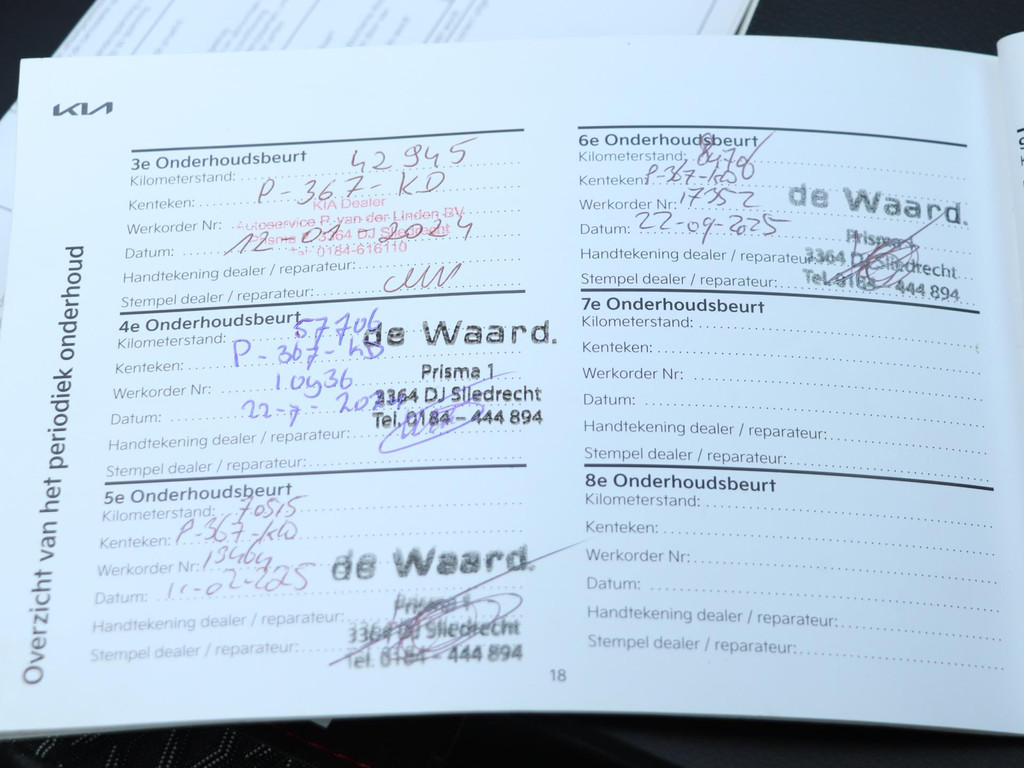 KIA
Overzicht van het periodiek onderhoud
3e Onderhoudsbeurt
Kilometerstand: 42945
Kenteken: P-367-KD
KIA Dealer
Werkorder Nr: Autoservice P. van der Linden BV
Prisma 3364 DJ Sliedrecht
Datum: 12-01-2024
Tel. 0184-616110
Handtekening dealer / reparateur:
Stempel dealer / reparateur:
4e Onderhoudsbeurt
Kilometerstand: 57706
de Waard.
Kenteken: P-367-KD
Werkorder Nr: 10936
Prisma 1
3364 DJ Sliedrecht
Datum: 22-7-2024
Tel. 0184 - 444 894
Handtekening dealer / reparateur:
Stempel dealer / reparateur:
5e Onderhoudsbeurt
Kilometerstand: 70515
Kenteken: P-367-KD
Werkorder Nr: 13464
de Waard.
Datum: 11-02-2025
Prisma 1
Handtekening dealer / reparateur:
3364 DJ Sliedrecht
Stempel dealer / reparateur:
Tel. 0184 - 444 894
6e Onderhoudsbeurt
Kilometerstand:
Kenteken: P-367-KD
Werkorder Nr: 17352
de Waard.
Datum: 22-09-2025
Prisma 1
Handtekening dealer / reparateur:
3364 DJ Sliedrecht
Stempel dealer / reparateur:
444 894
7e Onderhoudsbeurt
Kilometerstand:
Kenteken:
Werkorder Nr:
Datum:
Handtekening dealer / reparateur:
Stempel dealer / reparateur:
8e Onderhoudsbeurt
Kilometerstand:
Kenteken:
Werkorder Nr:
Datum:
Handtekening dealer / reparateur:
Stempel dealer / reparateur:
18